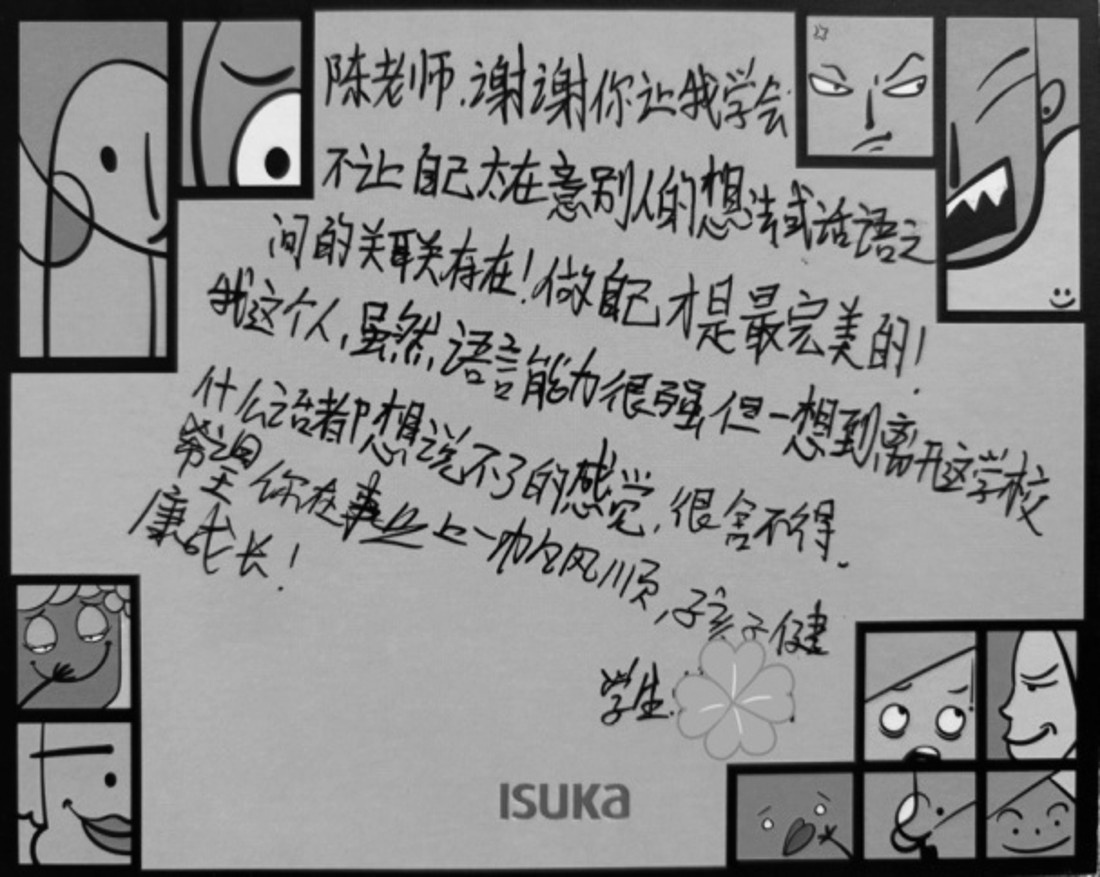 陈老师,谢谢你让我学会
不让自己太在意别人的想法或话语之
间的关联存在!做自己,才是最完美的!
我这个人,虽然语言能力很强但一想到离开这学校
什么话都想说不了的感觉,很舍不得.
希望你在事业上一帆风顺,孩子健
康成长!
学生:
ISUKa